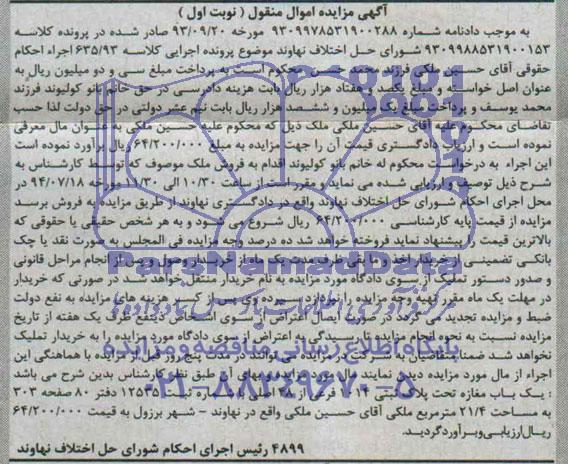 آگهی مزایده اموال منقول ( نوبت اول )
به موجب دادنامه شماره ۹۳۰۹۹۷۸۵۳۱۹۰۰۲۸۸ مورخه ۹۳/۰۹/۲۰ صادر شده در پرونده کلاسه
۹۳۰۹۹۸۸۵۳۱۹۰۰۱۵۳ شورای حل اختلاف نهاوند موضوع پرونده اجرایی کلاسه ۶۳۵/۹۳ اجراء احکام
حقوقی آقای حسین ملکی فرزند محمد حسین محکوم است به پرداخت مبلغ سی و دو میلیون ریال به
عنوان اصل خواسته و مبلغ یکصد و هفتاد هزار ریال بابت هزینه دادرسی در حق خانم بانو کولیوند فرزند
محمد یوسف و پرداخت مبلغ یک میلیون و ششصد هزار ریال بابت نیم عشر دولتی در حق دولت لذا حسب
تقاضای محکوم علیه آقای حسین ملکی ملک ذیل که محکوم علیه حسین ملکی به عنوان مال معرفی
نموده است و ارزیاب دادگستری قیمت آن را جهت مزایده به مبلغ ۶۴/۲۰۰/۰۰۰ ریال برآورد نموده است
این اجراء به درخواست محکوم له خانم بانو کولیوند اقدام به فروش ملک موصوف که توسط کارشناس به
شرح ذیل توصیف و ارزیابی شده می نماید و مقرر است از ساعت ۱۰/۳۰ الی ۱۱/۳۰ مورخه ۹۴/۰۷/۱۸ در
محل اجرای احکام شورای حل اختلاف نهاوند واقع در دادگستری نهاوند از طریق مزایده به فروش برسد
مزایده از قیمت پایه کارشناسی ۶۴/۲۰۰/۰۰۰ ریال شروع می شود و به هر شخص حقیقی یا حقوقی که
بالاترین قیمت را پیشنهاد نماید فروخته خواهد شد ده درصد وجه مزایده فی المجلس به صورت نقد یا چک
بانکی تضمینی از خریدار اخذ و ما بقی ظرف مدت یک ماه از خریدار وصول و پس از انجام مراحل قانونی
و صدور دستور تملیک از سوی دادگاه مورد مزایده به نام خریدار منتقل خواهد شد در صورتی که خریدار
در مهلت یک ماه مقرر بقیه وجه مزایده را نپردازد سپرده وی پس از کسر هزینه های مزایده به نفع دولت
ضبط و مزایده تجدید می گردد در صورت ایصال اعتراض از سوی اشخاص ذینفع ظرف یک هفته از تاریخ
مزایده نسبت به نحوه انجام مزایده تا رسیدگی به اعتراض از سوی دادگاه مورد مزایده را به خریدار تملیک
نخواهد شد ضمنا متقاضیان به شرکت در مزایده می توانند در مدت پنج روز قبل از مزایده با هماهنگی این
اجراء از مال مورد مزایده دیدن نمایند مال مورد مزایده و بهای آن طبق نظر کارشناس بدین شرح می باشد
: یک باب مغازه تحت پلاک ثبتی ۶۰۱۴ فرعی از ۲۸ اصلی به شماره ثبت ۱۲۵۳۵ دفتر ۸۰ صفحه ۳۰۳
به مساحت ۲۱/۴ مترمربع ملکی آقای حسین ملکی واقع در نهاوند - شهر برزول به قیمت ۶۴/۲۰۰/۰۰۰
ریال ارزیابی و برآورد گردید.
۴۸۹۹ رئیس اجرای احکام شورای حل اختلاف نهاوند
ParsNamadData
پایگاه اطلاع رسانی مناقصه و مزایده
۰۲۱-۸۸۳۴۹۶۷۰-۵